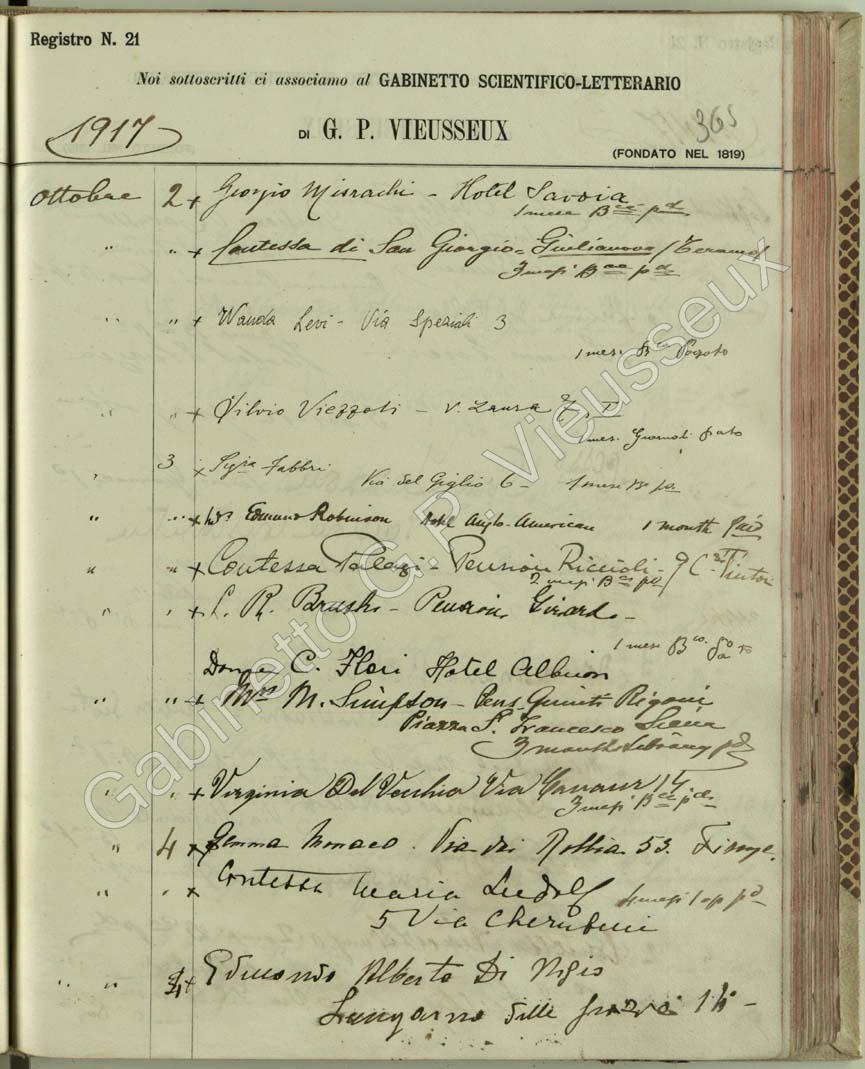 Registro N. 21
Noi sottoscritti ci associamo al GABINETTO SCIENTIFICO-LETTERARIO
1917
DI G. P. VIEUSSEUX
365
(FONDATO NEL 1819)
Ottobre 2 x Giorgio Misrachi - Hotel Savoia
1 mese Bca pd
" " x Contessa di San Giorgio - Giulianova (Teramo)
3 mesi Bca pd
" " x Wanda Levi - Via Speziali 3
1 mese Bca Pagato
" " x Silvio Viezzoli - V. Laura
1 mese Giornali pato
" 3 x Sigra Fabbri Via del Giglio 6 - 1 mese
" " x Mrs Edmund Robinson Hotel Anglo-American 1 month paid
" " x Contessa Palagi - Pension Riccioli - 9 C. Tintori
2 mesi Bca pd
" " x L. R. Brush - Pension Girard -
1 mese Bca
Donna C. Flori Hotel Albion
" " x Mrs M. Simpson - Pens. Rigoni
Piazza S. Francesco Siena
3 months Library pd
" " x Virginia Del Vecchio Via Cavour 14
3 mesi Bca pd
" 4 x Gemma Monaco. Via dei Robbia 53. Firenze.
" " x Contessa Maria Ludolf pd
5 Via Cherubini
" " 4 x Edmondo Alberto Di
Lungarno delle Grazie
Gabinetto G.P. Vieusseux